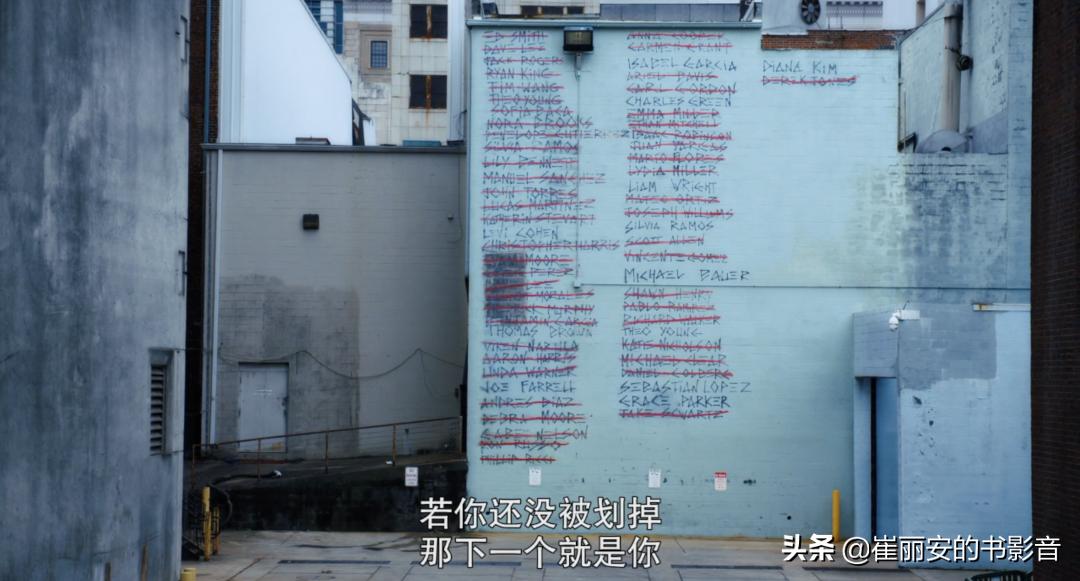 ED SMITH
DAVE LEE
JACK ROGERS
RYAN KING
TIM WANG
THEO YOUNG
SOFIA BACA
NORA BROOKS
PENELOPE GUTIERREZ
SILVIA RAMOS
LILY BENNETT
MANUEL SANCHEZ
JOHN TORRES
LUCAS MARTINEZ
KATHERIN STEWART
LEVI COHEN
CHRISTOPHER HARRIS
MOORE
MURPHY
BENJAMIN GARCIA
THOMAS BROWN
VIREN NARULA
AARON HARRIS
LINDA WARNER
JOE FARRELL
ANDRES DIAZ
DEBRA MOORE
GABE NELSON
RON RUSSO
PHILLIP RICCI
ANNA COOPER
CARMEN GRANT
ISABEL GARCIA
ARIEL DAVIS
CARL GORDON
CHARLES GREEN
EMMA MILLER
MITCHELL
ROBINSON
JUAN VARGAS
MARIO FLORES
LYDIA MILLER
LIAM WRIGHT
MARK ORTIZ
JOSEPH WILLIAMS
SILVIA RAMOS
SCOTT ALLEN
VINCENT GOMEZ
MICHAEL BAUER
SHAWN HENRY
PABLO RAMIREZ
RICHARD
THEO YOUNG
KATE NICHOLSON
MICHAEL CLEAR
DANIEL GOLDBERG
SEBASTIAN LOPEZ
GRACE PARKER
JAKE SCWARTZ
DIANA KIM
DERIK JONES
若你还没被划掉
那下一个就是你
头条 @崔丽安的书影音